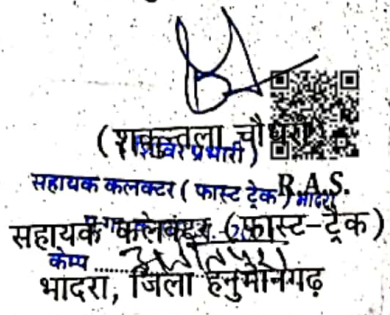 (शकुन्तला चौधरी)
(शिविर प्रभारी)
सहायक कलक्टर (फास्ट ट्रेक) भादरा
R.A.S.
सहायक कलक्टर (फास्ट-ट्रैक)
केम्प
भादरा, जिला हनुमानगढ़